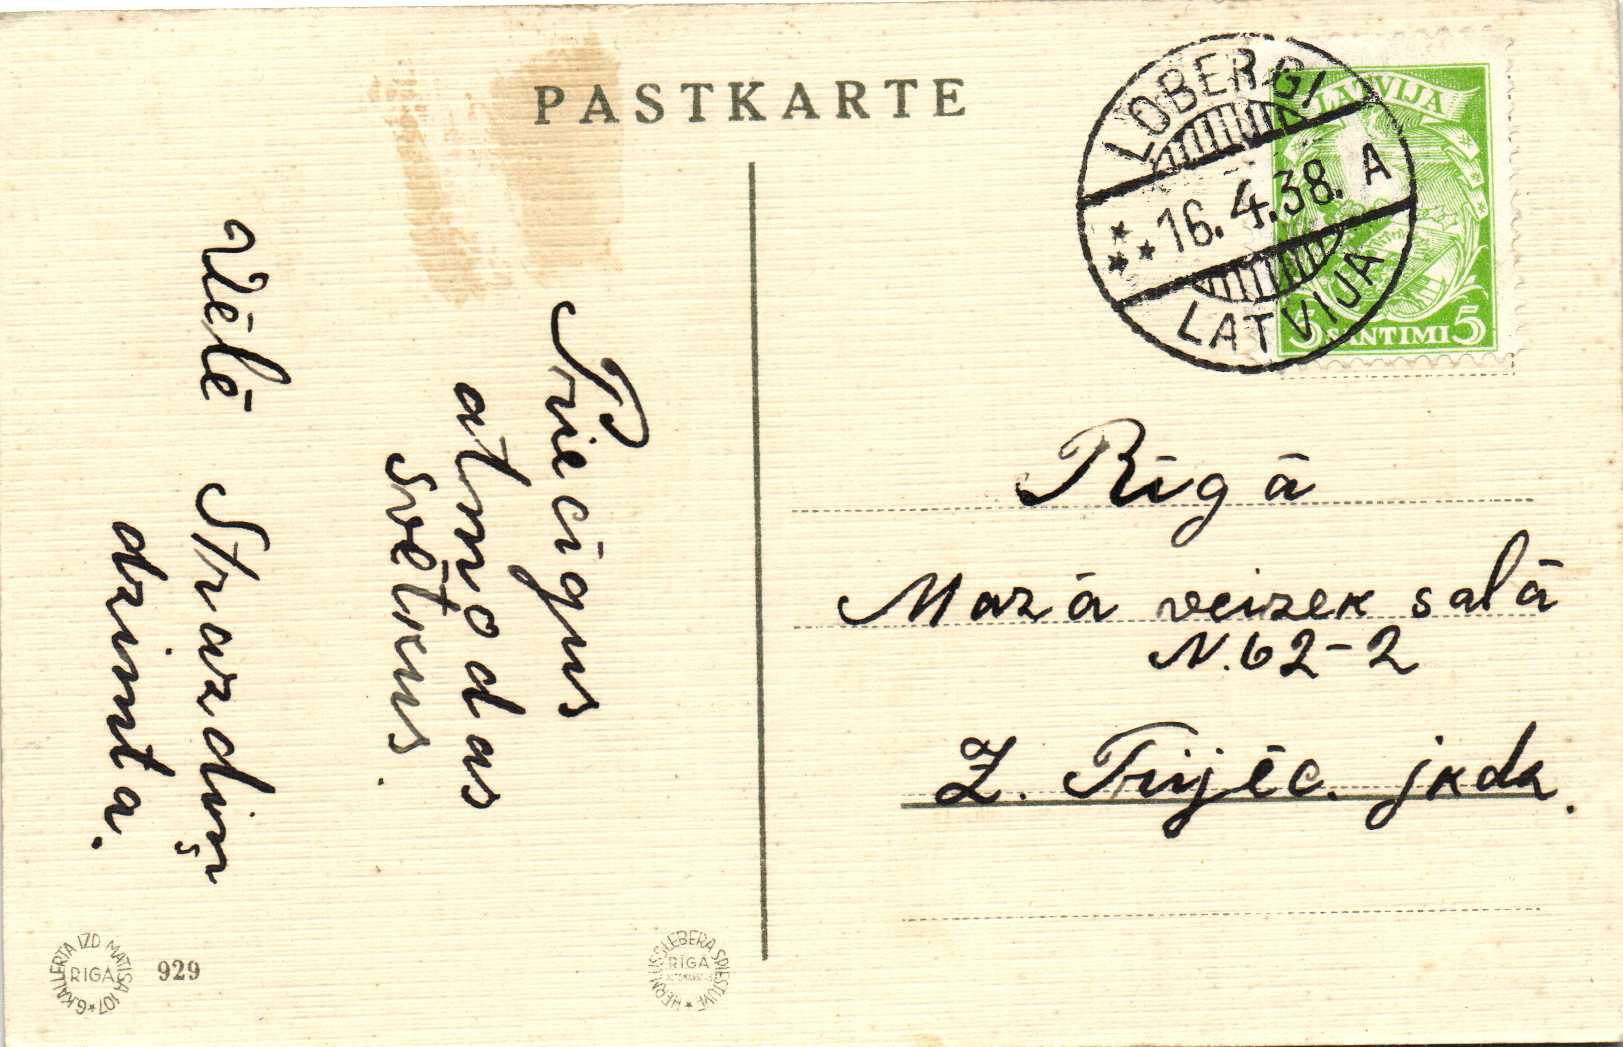 PASTKARTE
LOBERGI
16.4.38. A
LATVIJA
LATVIJA
5 SANTIMI 5
Priecīgus
atmodas
svētkus.
Vēlē Strazdiņ
dzimta.
Rīgā
Mazā veizek salā
N. 62-2
Z. jkdz.
G. KALLERTA IZD MATISA 107
RIGA
929
HERM. LUSSLEBERA SPIESTUVE
RĪGĀ